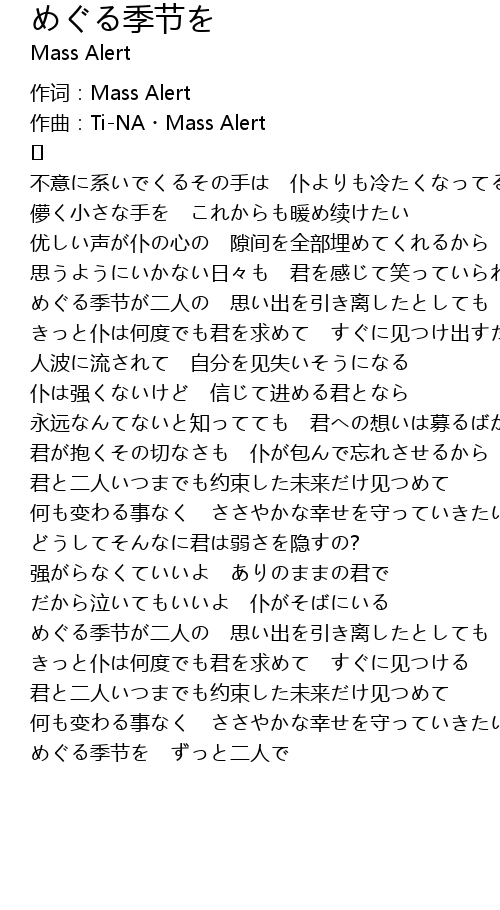 めぐる季节を
Mass Alert
作词：Mass Alert
作曲：Ti-NA・Mass Alert
[]
不意に系いでくるその手は　仆よりも冷たくなってる
儚く小さな手を　これからも暖め续けたい
优しい声が仆の心の　隙间を全部埋めてくれるから
思うようにいかない日々も　君を感じて笑っていられ
めぐる季节が二人の　思い出を引き离したとしても
きっと仆は何度でも君を求めて　すぐに见つけ出すた
人波に流されて　自分を见失いそうになる
仆は强くないけど　信じて进める君となら
永远なんてないと知ってても　君への想いは募るばか
君が抱くその切なさも　仆が包んで忘れさせるから
君と二人いつまでも约束した未来だけ见つめて
何も变わる事なく　ささやかな幸せを守っていきたい
どうしてそんなに君は弱さを隐すの?
强がらなくていいよ　ありのままの君で
だから泣いてもいいよ　仆がそばにいる
めぐる季节が二人の　思い出を引き离したとしても
きっと仆は何度でも君を求めて　すぐに见つける
君と二人いつまでも约束した未来だけ见つめて
何も变わる事なく　ささやかな幸せを守っていきたい
めぐる季节を　ずっと二人で